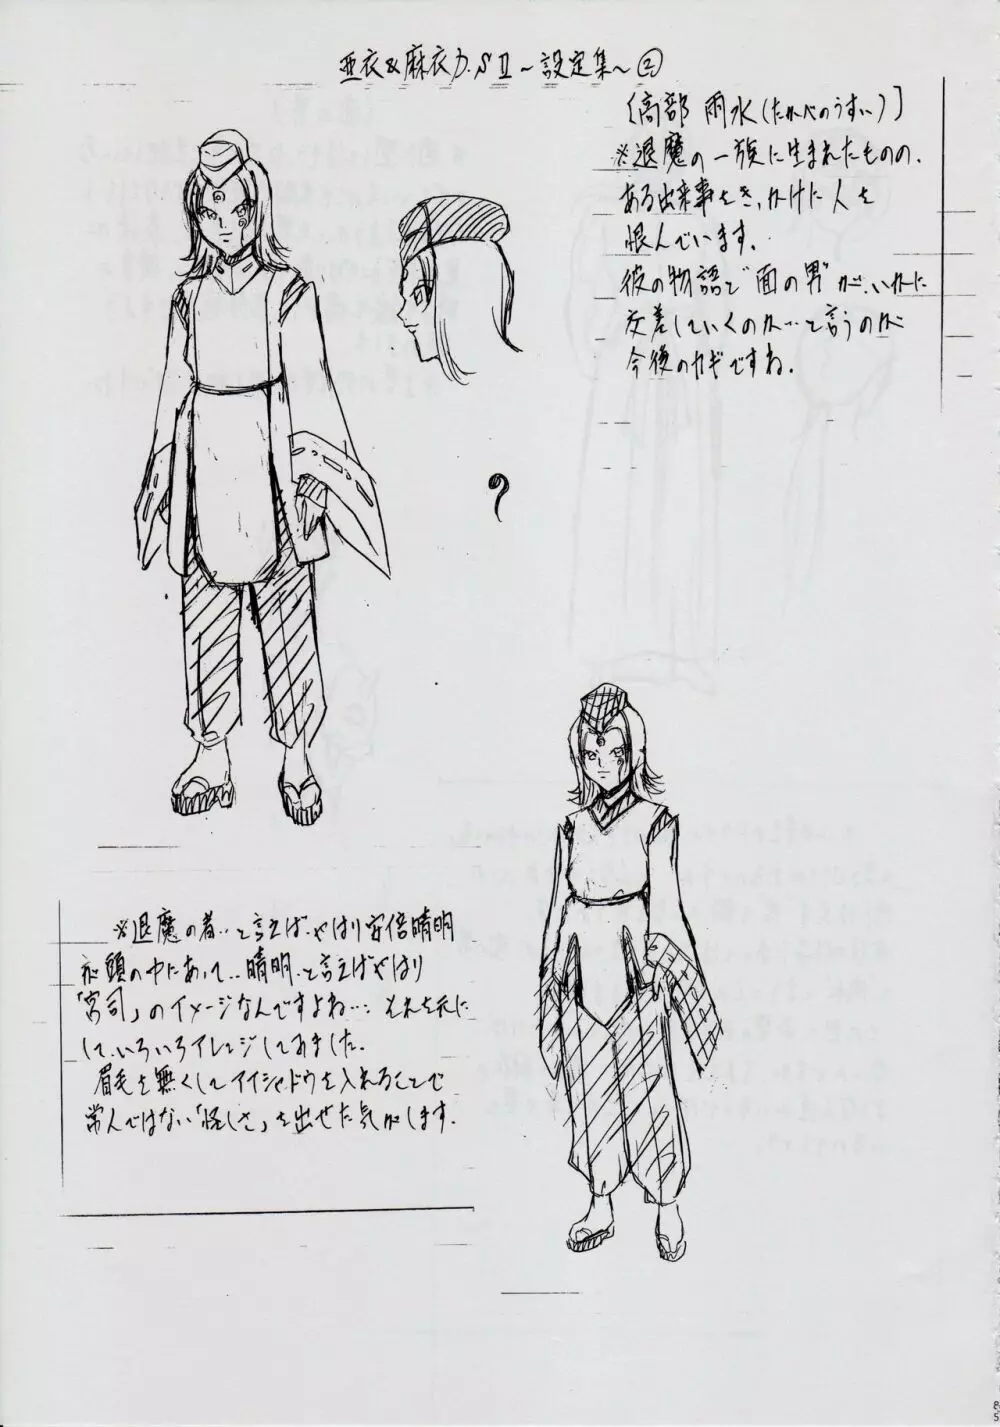 亜衣&麻衣D.SⅡ～設定集～②
〔高部 雨水(たかべのうすい)〕
※退魔の一族に生まれたものの、
ある出来事をきっかけに人を
恨んでいます。
彼の物語で"面の男"が、いかに
交差していくのか…と言うのが
今後のカギですね。
?
※退魔の者…と言えば、やはり安倍晴明
が頭の中にあって…晴明…と言えばやはり
「宮司」のイメージなんですよね…。それを元に
して、いろいろアレンジしてみました。
眉毛を無くしてアイシャドウを入れることで
常人ではない「怪しさ」を出せた気がします。